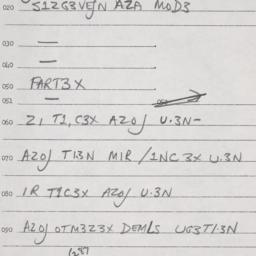 020 S1ZG3VEJN AZA MOD3
030 =
040 —
050 PART3X
051 —
060 Z1 T1,C3X AZOJ U.3N-
070 AZOJ T13N MIR/1NC3X U.3N
080 1R T1C3X AZOJ U.3N
090 AZOJ OTM3Z3X DEMLS UG3T1.3N